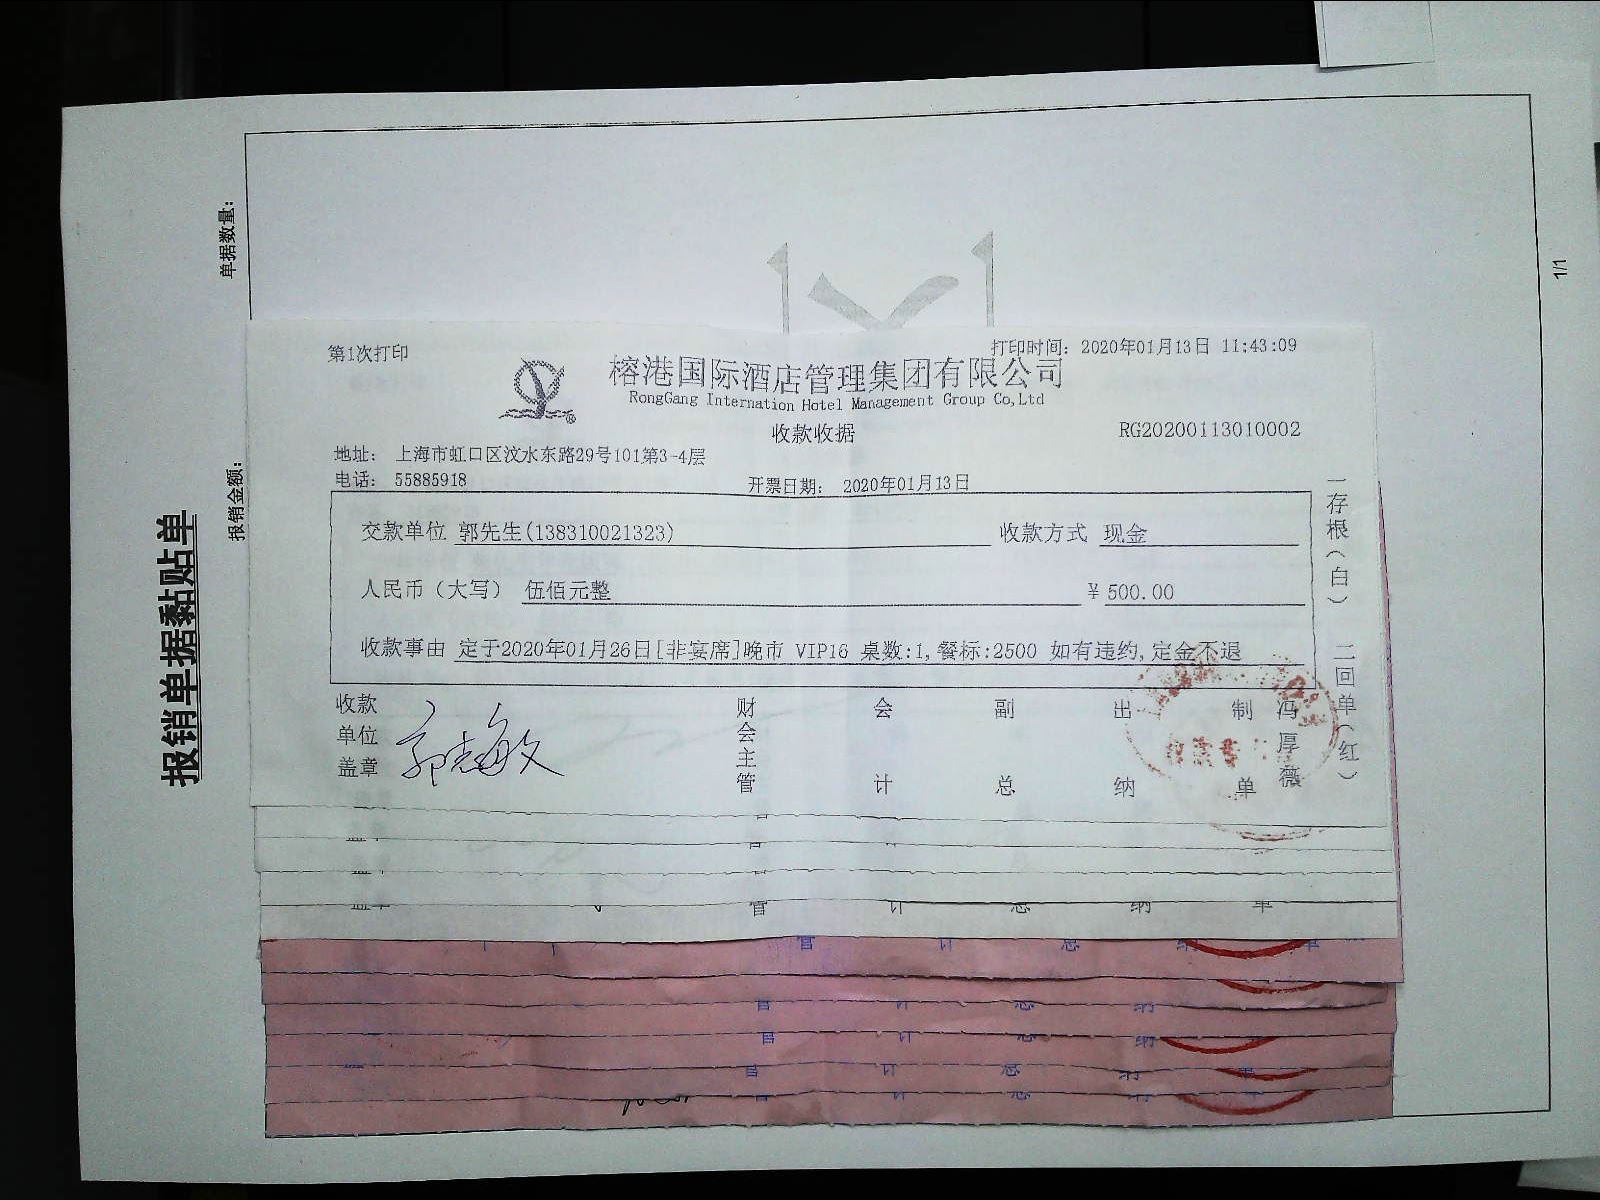 报销单据黏贴单
报销金额：
单据数量：
1/1
第1次打印
打印时间：2020年01月13日 11:43:09
榕港国际酒店管理集团有限公司
RongGang Internation Hotel Management Group Co,Ltd
收款收据
RG20200113010002
地址： 上海市虹口区汶水东路29号101第3-4层
电话： 55885918
开票日期： 2020年01月13日
交款单位 郭先生(138310021323) 收款方式 现金
人民币（大写） 伍佰元整 ¥ 500.00
收款事由 定于2020年01月26日[非宴席]晚市 VIP16 桌数:1,餐标:2500 如有违约,定金不退
收款单位盖章 财会主管 会计 副总 出纳 制单 冯厚薇
一存根（白） 二回单（红）